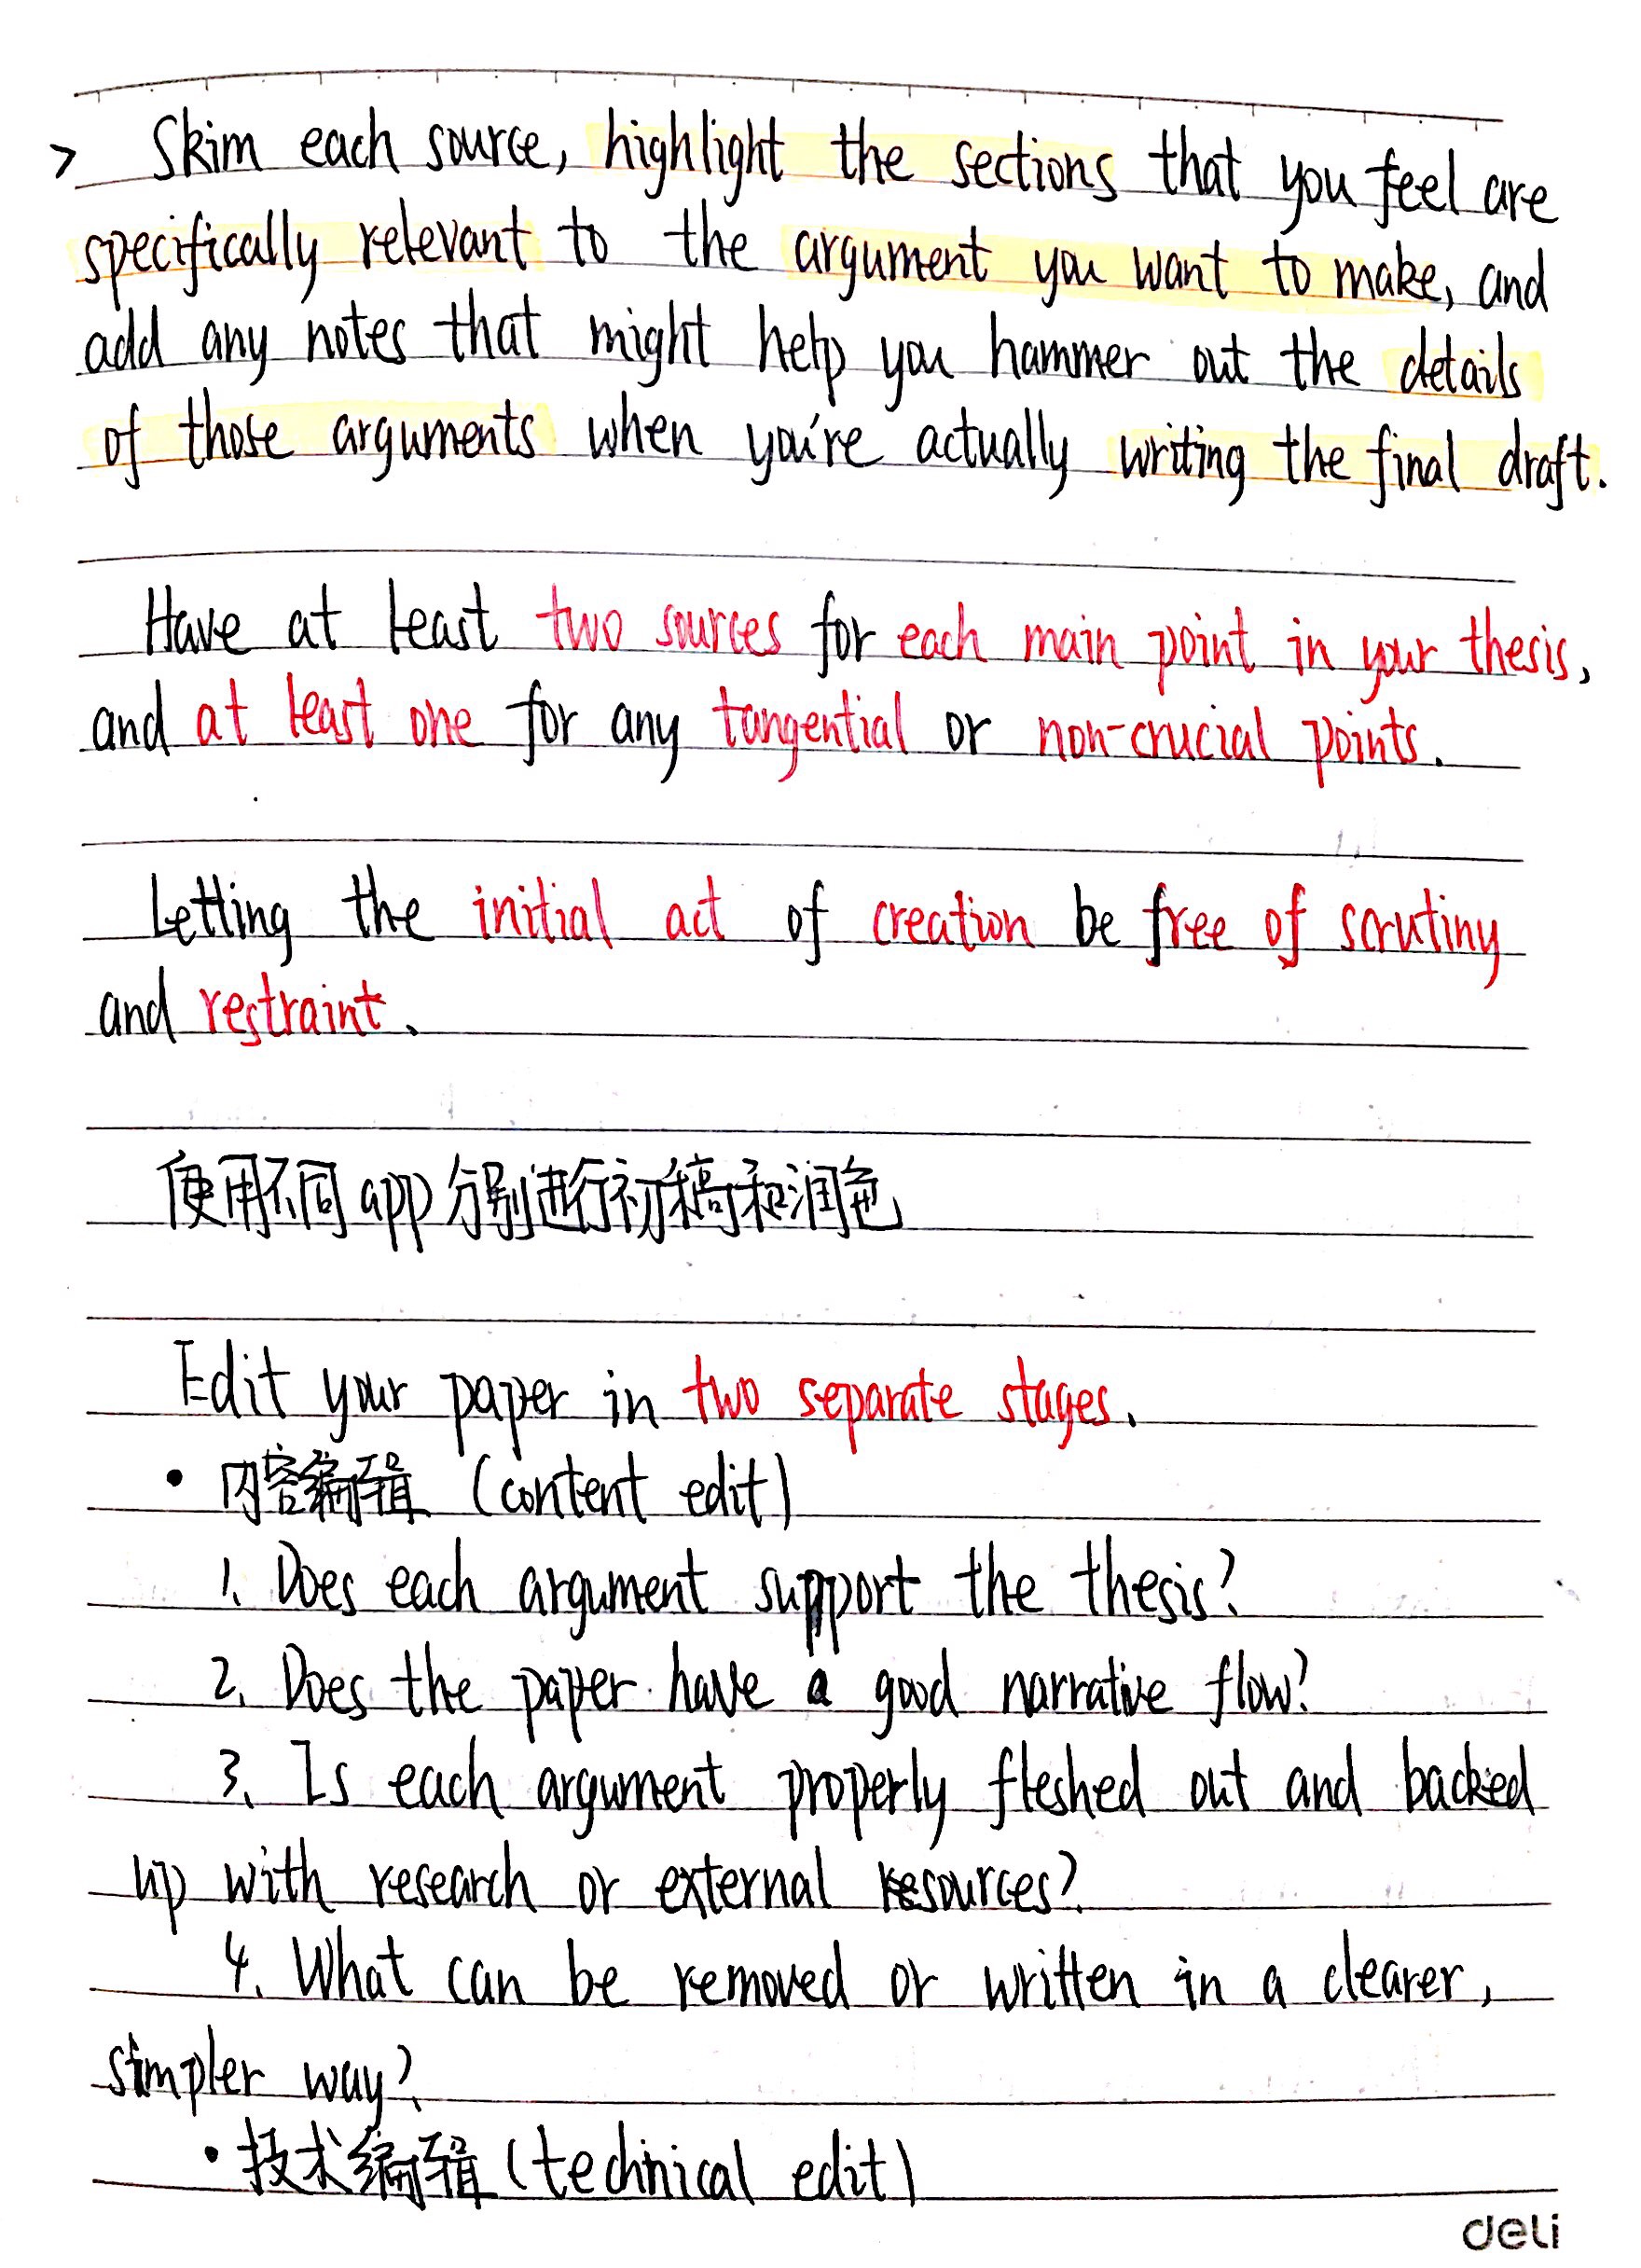 > Skim each source, highlight the sections that you feel are
specifically relevant to the argument you want to make, and
add any notes that might help you hammer out the details
of those arguments when you're actually writing the final draft.
Have at least two sources for each main point in your thesis,
and at least one for any tangential or non-crucial points.
Letting the initial act of creation be free of scrutiny
and restraint.
使用不同app分别进行初稿和润色
Edit your paper in two separate stages.
• 内容编辑 (content edit)
1. Does each argument support the thesis?
2. Does the paper have a good narrative flow?
3. Is each argument properly fleshed out and backed
up with research or external resources?
4. What can be removed or written in a clearer,
simpler way?
• 技术编辑 (technical edit)
deli